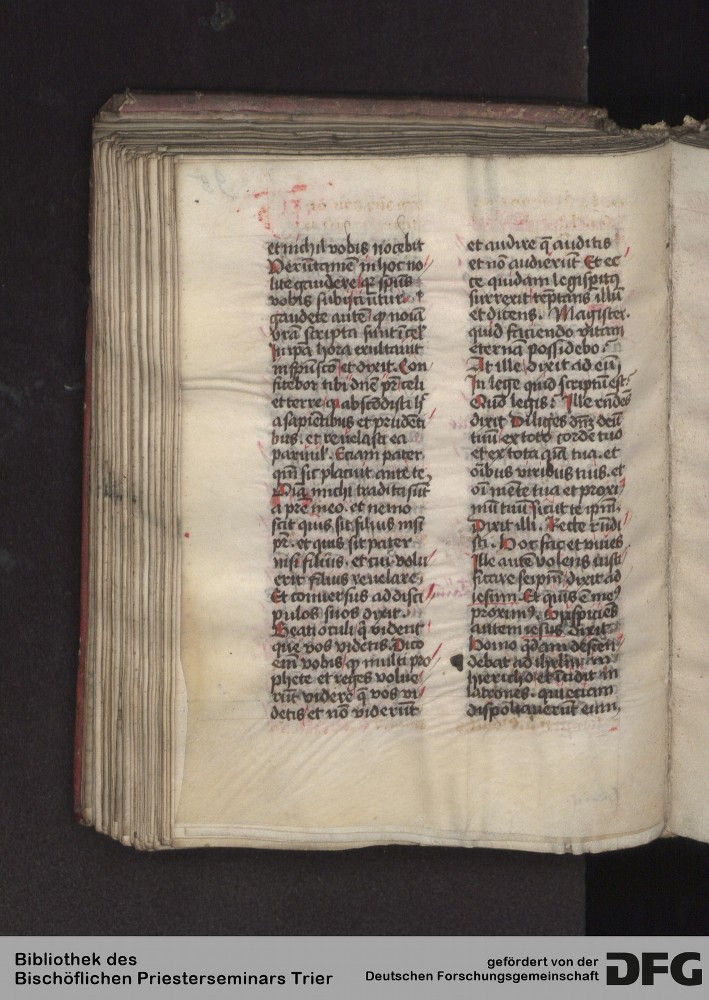 et nichil vobis nocebit
Verūtamē in hoc no
lite gaudere qr̄ spūs
vobis subiciuntur
gaudete autē q̄ noīa
vrā scripta sunt ī cel̄
In ipā hora exultauit
in spū scō et dixit. Con
fitebor tibi dnē pr̄ celi
et terre q̄ abscōdisti h̄
a sapientibus et prudēti
bus. et reuelasti ea
paruul̄. Etiam pater
qm̄ sic placuit ante te
Oīa michi tradita sūt
a prē meo. et nemo
scit quis sit filius nisi
pr̄. et quis sit pater
nisi filius. et cui volu
erit filius reuelare
Et conuersus ad disci
pulos suos dixit.
Beati oculi q̄ vident
que vos videtis. Dico
em̄ vobis q̄ multi pro
phete et reges volue
rūt videre q̄ vos vi
detis et nō viderūt
et audire q̄ auditis
et nō audierūt Et ec
ce quidam legispitꝰ
surrexit tēptans illū
et dicens. Magister.
quid faciendo vitam
eternā possidebo.
At ille dixit ad eū
In lege quid scriptū est
Quō legis. Ille rn̄dēs
dixit Diliges dn̄m deū
tuū ex toto corde tuo
et ex tota aīa tua. et
oībus viribus tuis. et
oī mēte tua et proxi
mū tuū sicut te ipm̄.
Dixit illi. Recte rn̄di
sti. Hoc fac et viues
Ille autē volens iusti
ficare seipm̄ dixit ad
iesum. Et quis ē meꝰ
proximꝰ. Suspiciēs
autem iesus dixit
Homo q̄dam descen
debat ad ihrlm̄ in
hiericho et īcidit in
latrones. qui eciam
dispoliauerūt eum
Bibliothek des
Bischöflichen Priesterseminars Trier
gefördert von der
Deutschen Forschungsgemeinschaft
DFG